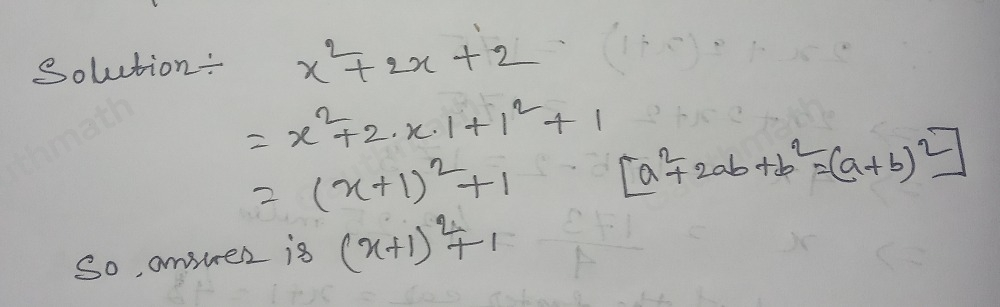 Solution÷ x²+2x+2
= x²+2.x.1+1²+1
= (x+1)²+1 [a²+2ab+b²=(a+b)²]
So, answer is (x+1)²+1